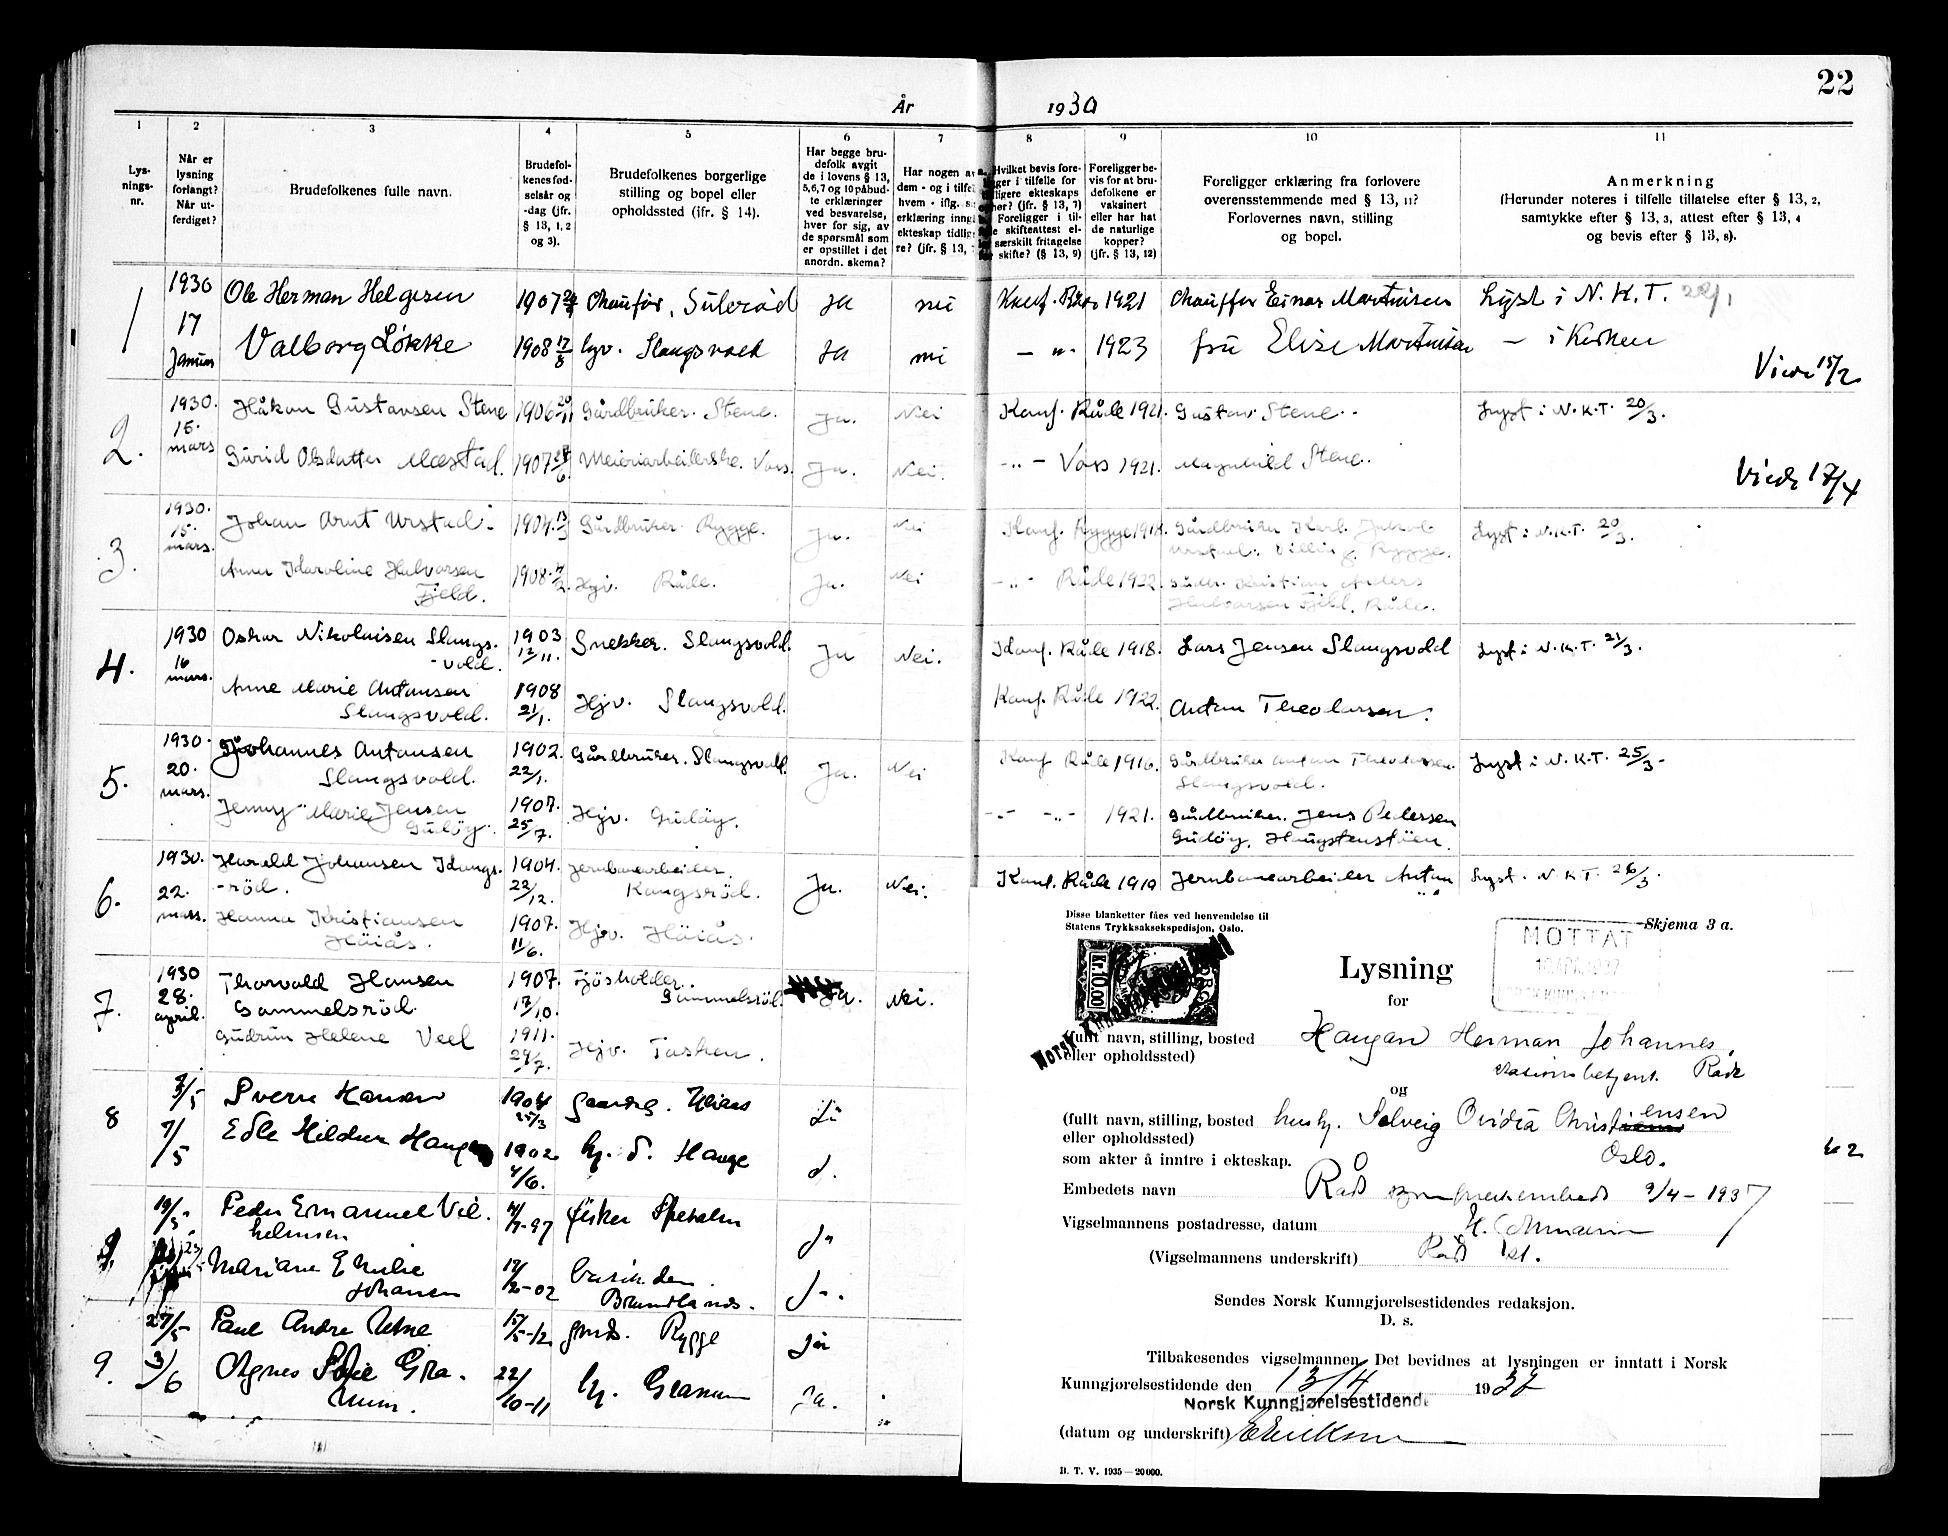 22
År 1930
1 2 3 4 5 6 7 8 9 10 11
Lys-
nings-
nr.
Når er
lysning
forlangt?
Når ut-
ferdiget?
Brudefolkenes fulle navn.
Brudefol-
kenes fød-
selsår og
-dag (jfr.
§ 13, 1, 2
og 3).
Brudefolkenes borgerlige
stilling og bopel eller
opholdssted (ifr. § 14).
Har begge bru-
defolk avgit
de i lovens § 13,
5,6,7 og 10 påbud-
te erklæringer
ved besvarelse,
hver for sig, av
de spørsmål som
er opstillet i det
anordn. skema?
Har nogen av
dem - og i tilfe
hvem - iflg. s
erklæring inng
ekteskap tidlig
re? (jfr. § 13,
Hvilket bevis fore-
ger i tilfelle for
ligere ekteskaps
her? (jfr. § 13, 7)
Foreligger i til-
e skifteattest el-
særskilt fritagelse
skifte? (§ 13, 9)
Foreligger be-
vis for at bru-
defolkene er
vaksinert
eller har hat
de naturlige
kopper?
(jfr. § 13, 12)
Foreligger erklæring fra forlovere
overensstemmende med § 13, 11?
Forlovernes navn, stilling
og bopel.
Anmerkning
(Herunder noteres i tilfelle tillatelse efter § 13, 2,
samtykke efter § 13, 3, attest efter § 13, 4
og bevis efter § 13, 8).
1 1930 Ole Herman Helgesen 1907 Chauffør, Sulerød Ja nei Konf. Råde 1921 Chauffør Einar Martinsen Lyst i N. K. T. 22/1
17 Januar Valborg Løkke 1908 17/8 hjv. Slangsvold Ja nei — „ - 1923 fru Elise Martinsen — i Kirken
Viede 15/2
2. 1930. 15. mars Håkon Gustavsen Stene 1906 20/11 Gårdbruker. Stene. Ja. Nei Konf. Råde 1921. Gustav Stene. Lyst i N.K.T. 20/3.
Gurid Olsdatter Mæstad. 1907 Meieriarbeiderske. Voss. Ja. Nei. - „ - Voss 1921. Magnhild Stene.
Viede 17/4
3. 1930. 15. mars. Johan Arnt Urstad. 1904. 13/3 Gårdbruker Rygge. Ja. Nei Konf. Rygge 1918. Gårdbruker Karl
Urstad. Dilling. Rygge. Lyst i N.K.T. 20/3.
Anna Karoline Halvorsen
Fjeld. 1908. Hjv. Råde. Ja. Nei - „ - Råde 1922. Kristian Anders
Halvorsen Fjeld. Råde.
4. 1930 16 mars. Oskar Nikolaisen Slangs-
vold. 1903 12/11. Snekker. Slangsvold. Ja Nei. Konf. Råde 1918. Lars Jensen Slangsvold Lyst i N.K.T. 21/3.
Anne Marie Antonsen
Slangsvold. 1908 21/1. Hjv. Slangsvold. Konf. Råde 1922. Anton Theodorsen.
5. 1930. 20. mars. Johannes Antonsen
Slangsvold. 1902. 22/1. Gårdbruker. Slangsvold. Ja. Nei Konf Råde 1916. Gårdbruker Anton Theodorsen.
Slangsvold. Lyst i N.K.T. 25/3.
Jenny Marie Jensen
Gudøy. 1907. 25/7. Hjv. Gudøy. - „ - - „ - 1921. Gårdbruker. Jens Pedersen
Gudøy, Haugstenstøen.
6. 1930. 22. mars. Harald Johansen Kangs-
rød. 1904. 22/12. Jernbanearbeider.
Kangsrød. Ja. Nei. Konf. Råde 1919 Jernbanearbeider Anton Lyst i N.K.T. 26/3.
Hanna Kristiansen
Høiås. 1907. 11/6. Hjv. Høiås.
7. 1930 28. april. Thorvald Hansen
Gammelsrød. 1907. 17/10. Fjøsholder.
Gammelsrød. Ja. Nei.
Gudrun Helene Veel 1911. 29/7. Hjv. Tasken.
8 3/5 Sverre Hansen 1904 25/3 gaardbr. Høiås Ja
7/5 Edle Hildur Hauge 1902 4/6. hj. d. Hauge d.
19/5 Peder Emanuel Vil-
helmsen -97 fisker Ja
Mariane Emilie
Johansen -02 Ja.
27/5 Paul Andre Utne 15/5-12 Rygge Ja
9. 3/6 Agnes Sofie Gra-
num. 22/10-11 hj. Granum Ja.
Disse blanketter fåes ved henvendelse til
Statens Trykksaksekspedisjon, Oslo.
Skjema 3 a.
MOTTAT
Kr.10.00
Norsk Kunngjørelsestidende
Lysning
for
(fullt navn, stilling, bosted
eller opholdssted) Haugan Herman Johannes,
stasjonsbetjent. Råde
og
(fullt navn, stilling, bosted
eller opholdssted) hush. Solveig Ovidia Christensen
Oslo.
som akter å inntre i ekteskap.
Embedets navn Råde sogneprestembede 9/4 - 1937
Vigselmannens postadresse, datum
(Vigselmannens underskrift) Råde st.
Sendes Norsk Kunngjørelsestidendes redaksjon.
D. s.
Tilbakesendes vigselmannen. Det bevidnes at lysningen er inntatt i Norsk
Kunngjørelsestidende den 13/4 1937
Norsk Kunngjørelsestidende
(datum og underskrift)
D. T. V. 1935 — 20 000.